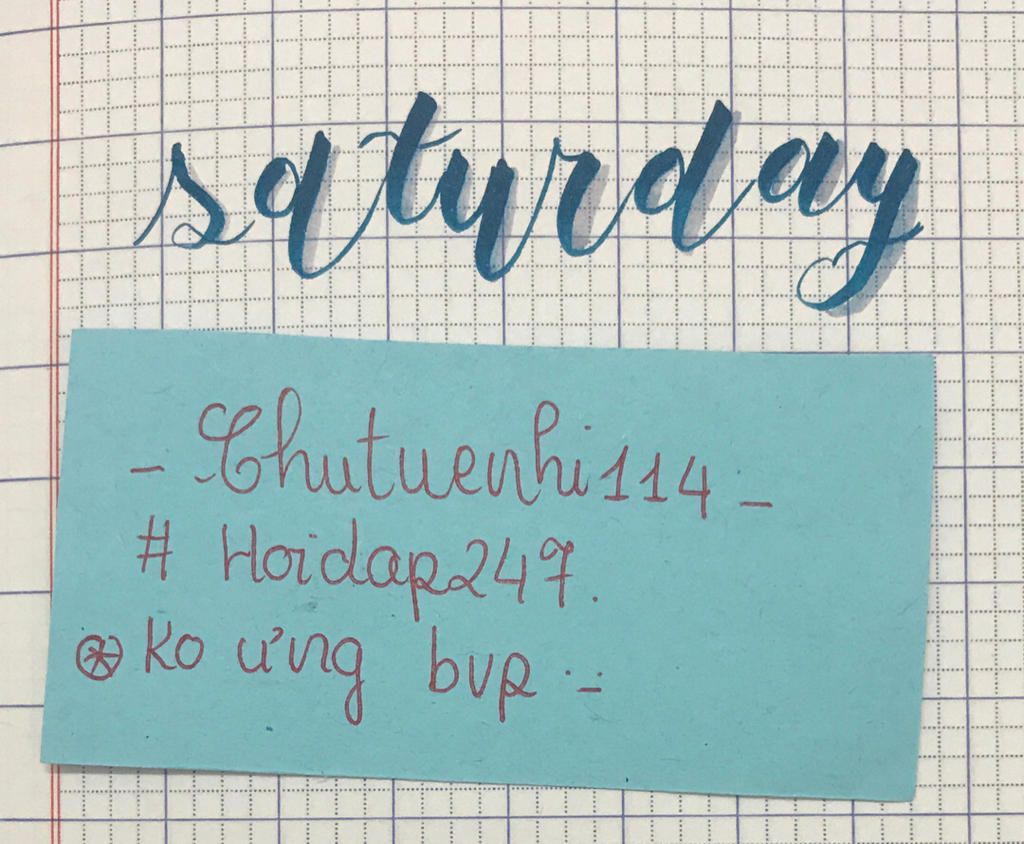 saturday
- Chutuenhi114 -
# Hoidap247.
ko ưng bvp